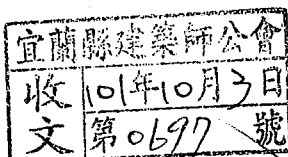 宜蘭縣建築師公會
收文
101年10月3日
第0697號